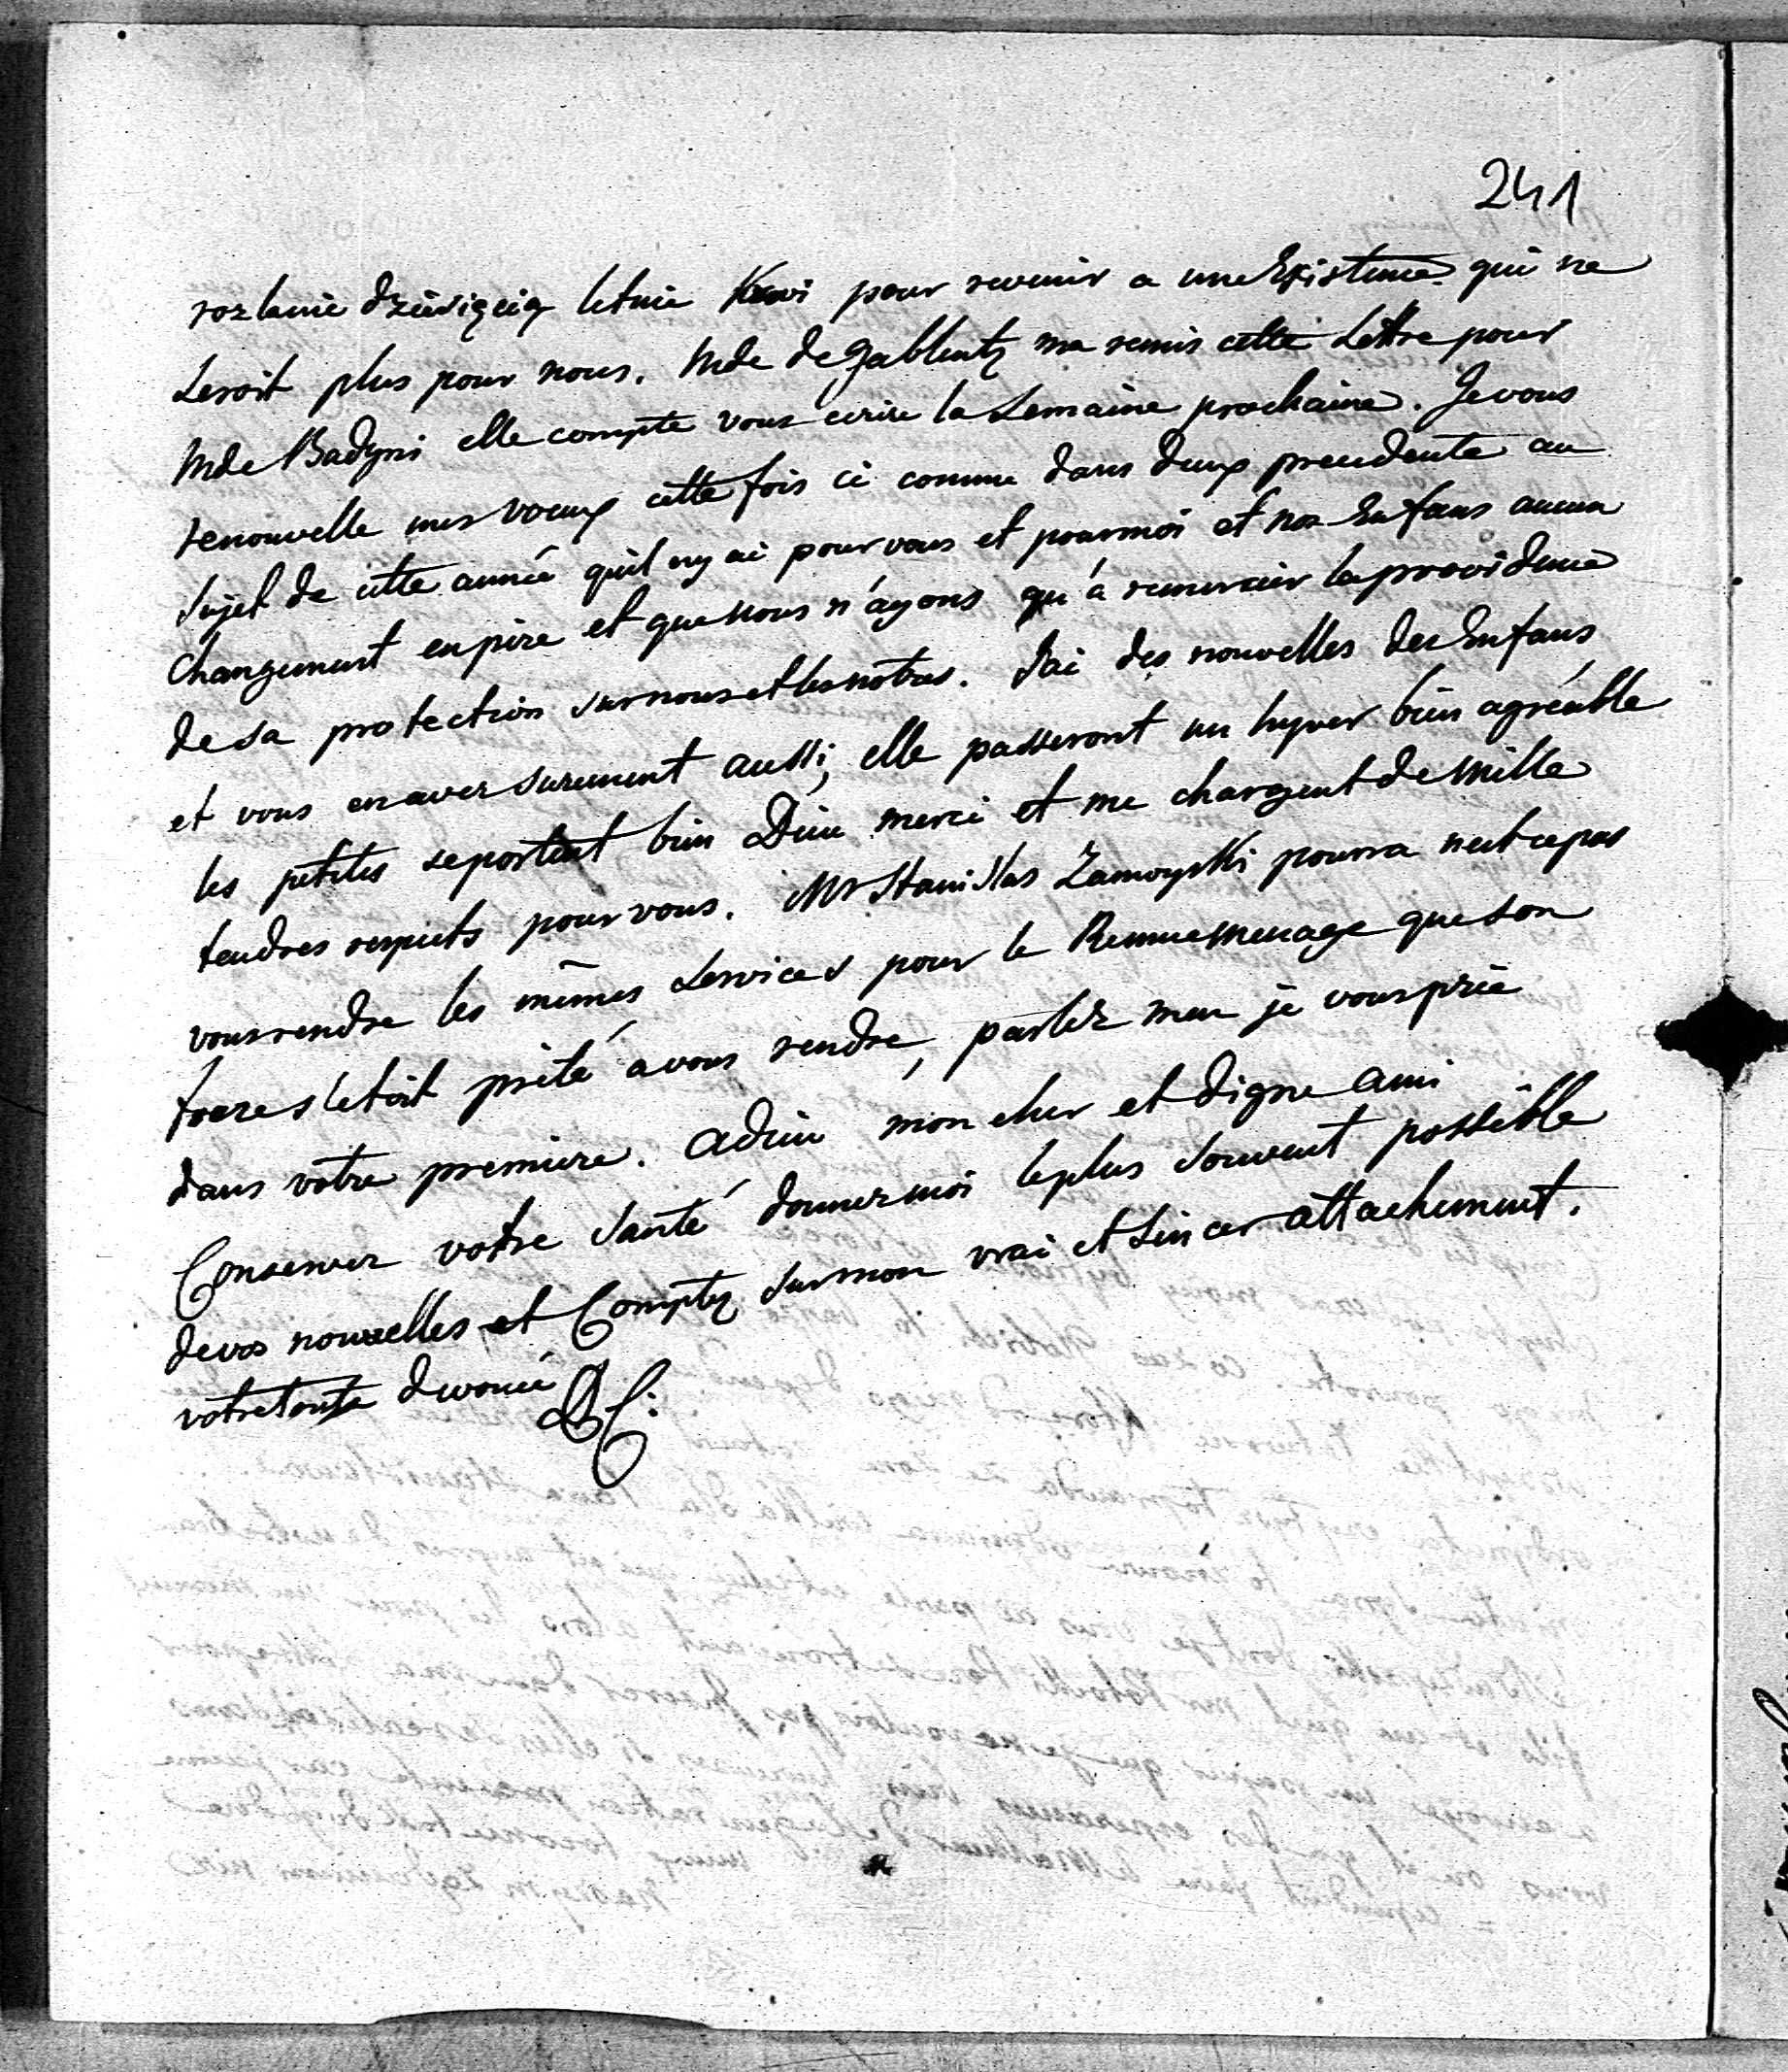 241
rozlanie dziesięcią letnie Krwi pour revenir a une Existence qui ne
seroit plus pour nous. Mde de Gablentz ma remis cette Lettre pour
Mde Badyni elle compte vous ecrire la Semaine prochaine. Je vous
renouvelle mes voeux cette fois ci comme dans deux precedente au
sujet de cette année quil ny ai pour vous et pour moi et nos Enfans aucun
changement en pire et que nous n'ayons qu'a remercier la providence
de sa protection sur nous et les notres. J'ai des nouvelles des Enfans
et vous en avez surement aussi, elle passeront un hyver bien agréable
les petites se portent bien Dieu merci et me chargent de mille
tendres respects pour vous. Mr Stanislas Zamoyski pourra nest ce pas
vous rendre les mêmes services pour le Remuemenage que son
frere s'etoit prêté a vous rendre, parlez men je vous prie
dans votre premiere. adieu mon cher et digne ami
Conservez votre Santé donnez moi le plus souvent possible
de vos nouvelles et Comptez sur mon vrai et sincer attachement.
votre toute devouée
DC.